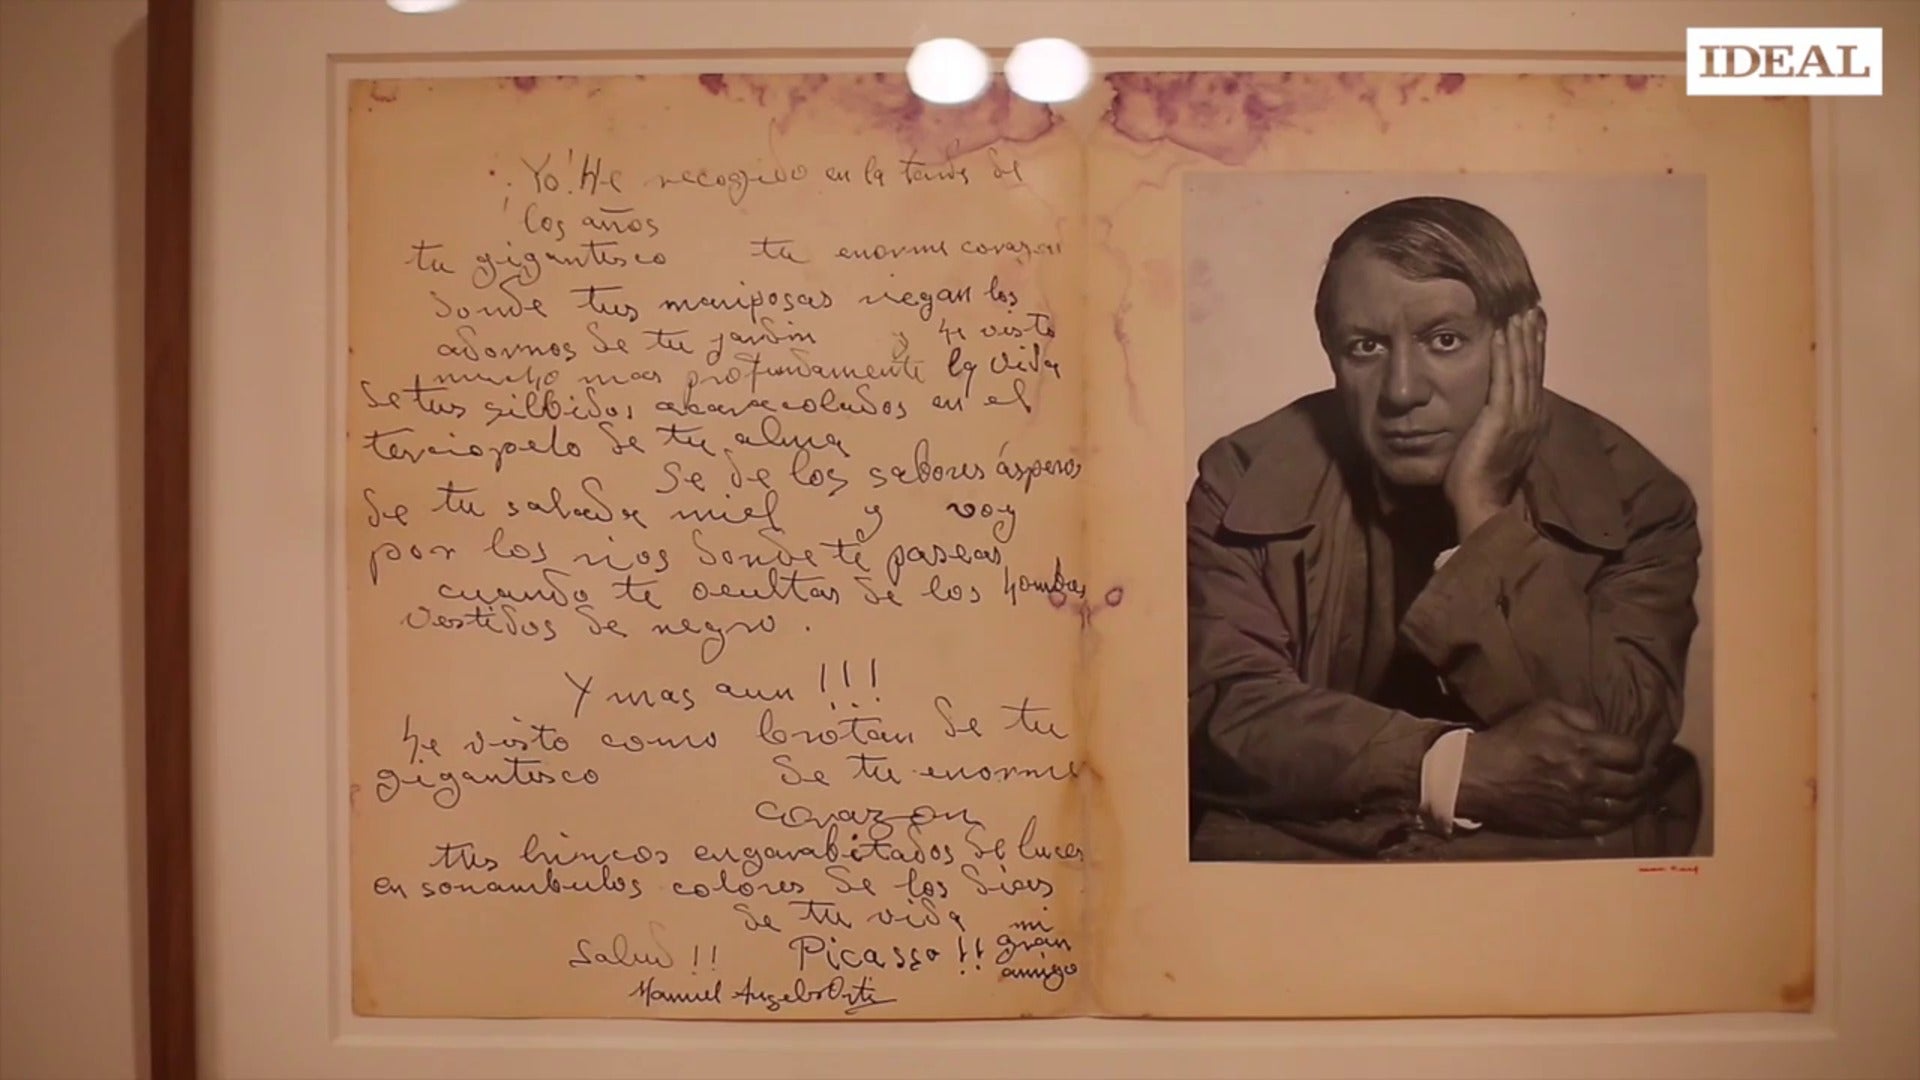 IDEAL
Yo! He recogido en la tarde de
los años
tu gigantesco tu enorme corazon
donde tus mariposas riegan los
adornos de tu jardin y he visto
mucho mas profundamente la vida
de tus silbidos acaracolados en el
terciopelo de tu alma
se de los sabores ásperos
de tu salada miel y voy
por los rios donde te paseas
cuando te ocultas de los hombres
vestidos de negro.
Y mas aun !!!
he visto como brotan de tu
gigantesco de tu enorme
corazon
tus brincos engarabitados de luces
en sonambulos colores de los dias
de tu vida
Salud !! Picasso !! mi gran amigo
Manuel Angeles Ortiz